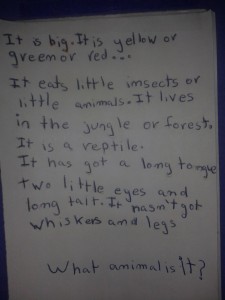 It is big. It is yellow or
green or red...
It eats little insects or
little animals. It lives
in the jungle or forest.
It is a reptile.
It has got a long tongue
two little eyes and
long tail. It hasn't got
whiskers and legs
What animal is it?